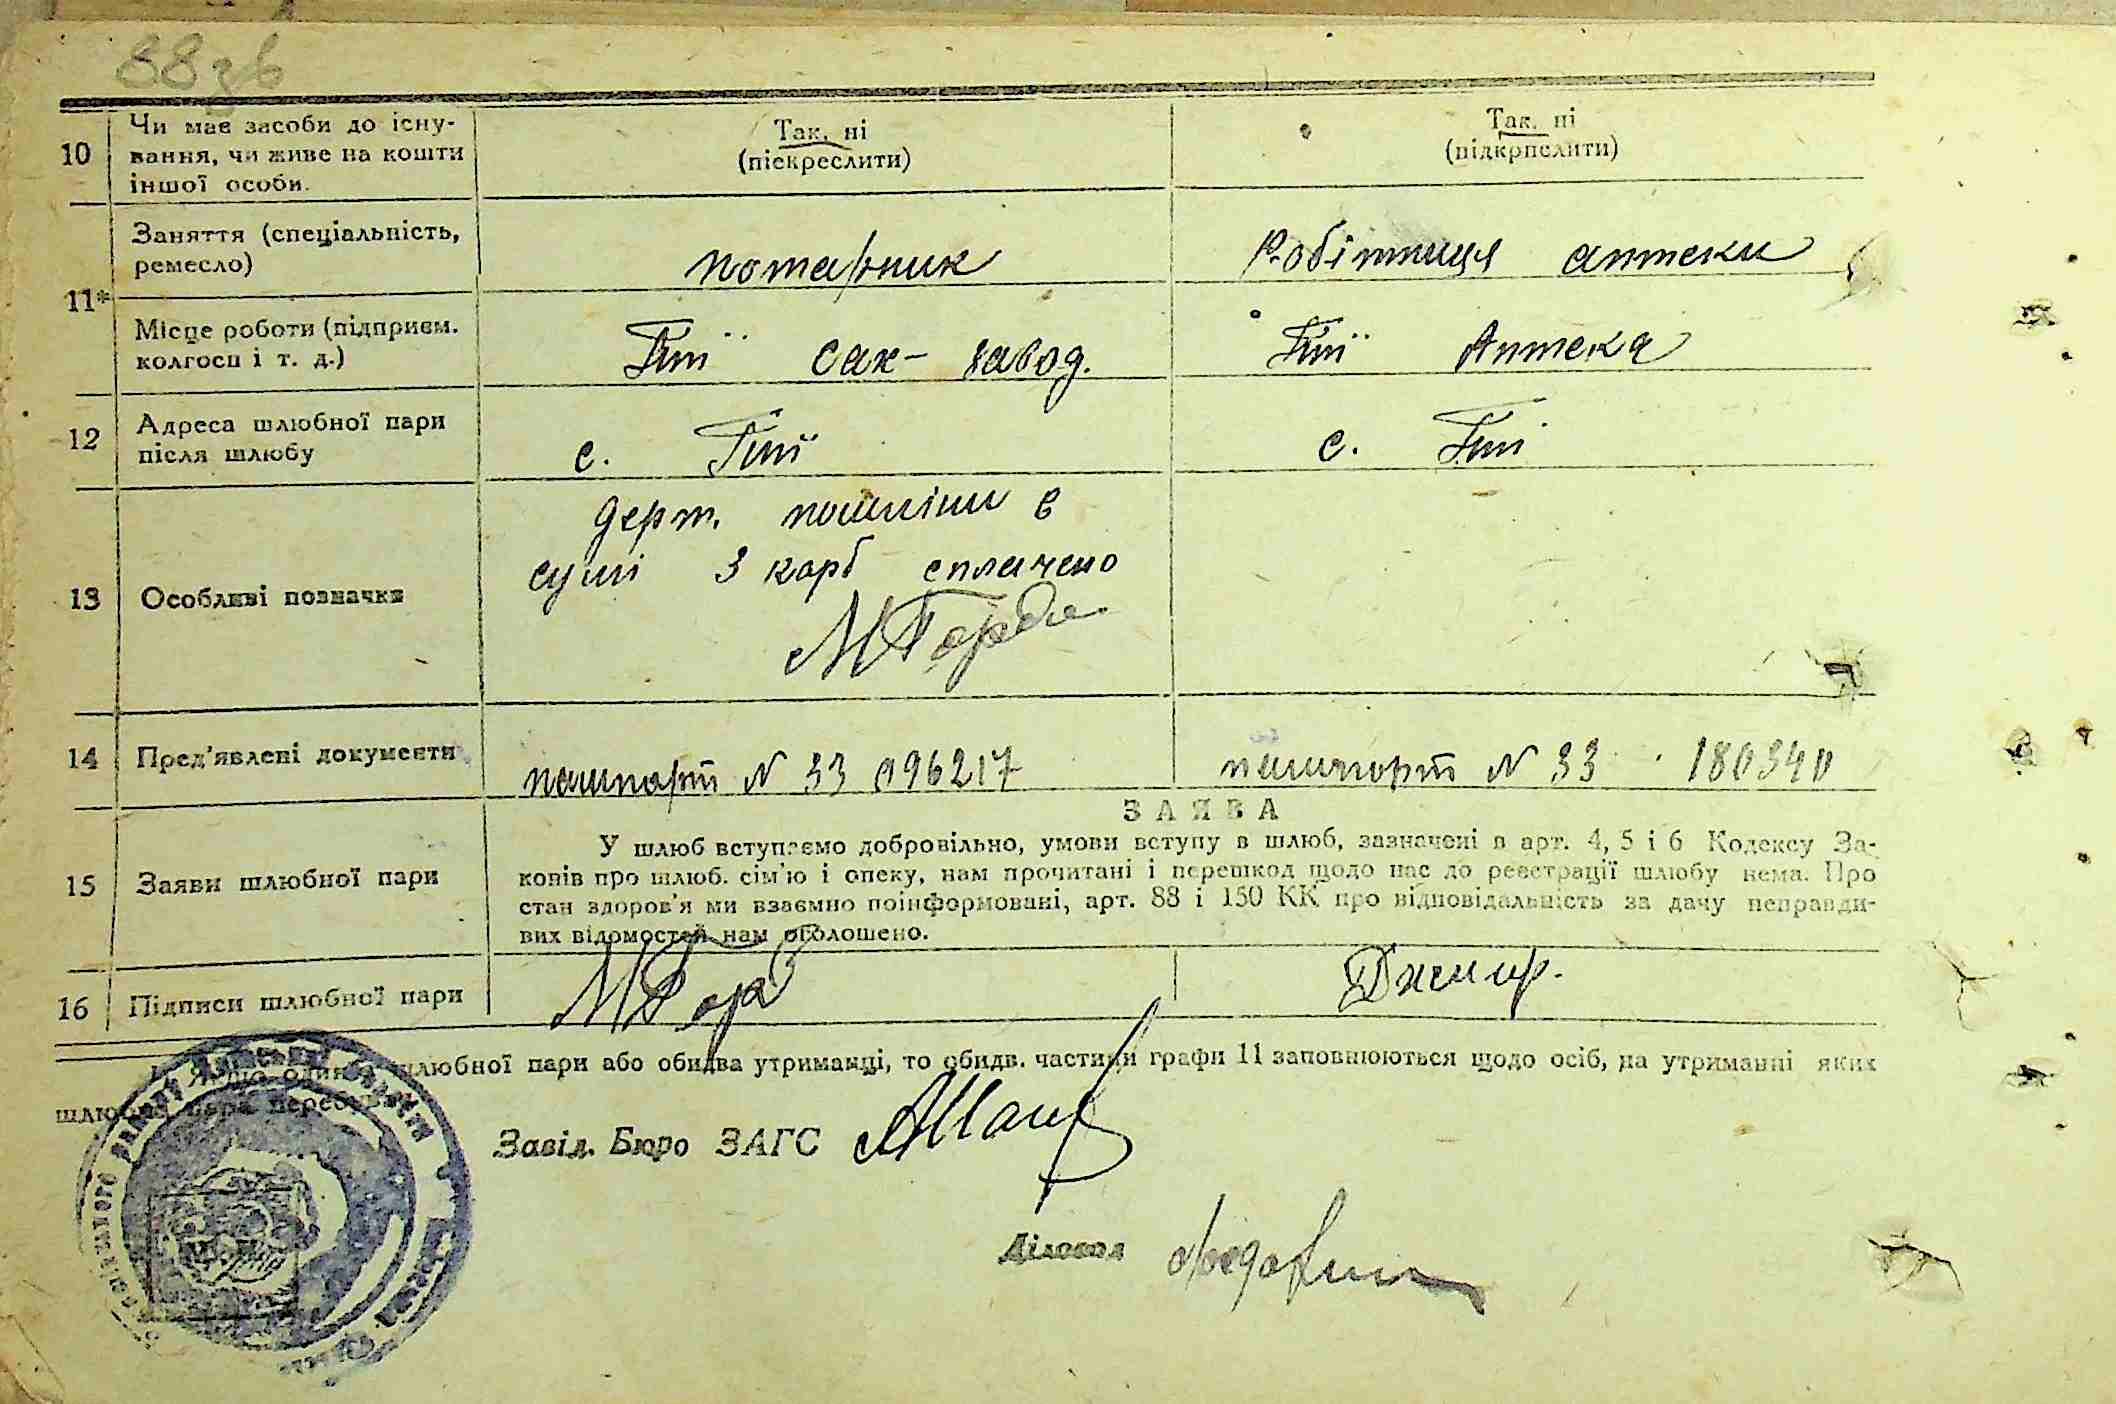 88зв
10 Чи має засоби до існу-
вання, чи живе на кошти
іншої особи.
Так, ні
(піекреслити)
Так, ні
(підкрпслити)
11*
Заняття (спеціальність,
ремесло)
потарник
Робітниця аптеки
Місце роботи (підприєм.
колгосп і т. д.)
Гнії сах- завод.
Гнії Аптека
12 Адреса шлюбної пари
після шлюбу
с. Гнії
с. Гнії
13 Особливі позначки
держ. пошліни в
сумі 3 карб сплачено
МГорба
14 Пред'явлені документи
пашпорт N 33 096217
пашпорт N 33 180340
ЗАЯВА
15 Заяви шлюбної пари
У шлюб вступаємо добровільно, умови вступу в шлюб, зазначені в арт. 4, 5 і 6 Кодексу За-
конів про шлюб. сім'ю і опеку, нам прочитані і перешкод щодо нас до реєстрації шлюбу нема. Про
стан здоров'я ми взаємно поінформовані, арт. 88 і 150 КК про відповідальність за дачу неправди-
вих відомостей нам оголошено.
16 Підписи шлюбної пари
МГорб
Якщо один з шлюбної пари або обидва утриманці, то обидв. частини графи 11 заповнюються щодо осіб, на утриманні яких
шлюбна пара перебуває.
Завід. Бюро ЗАГС
Діловод